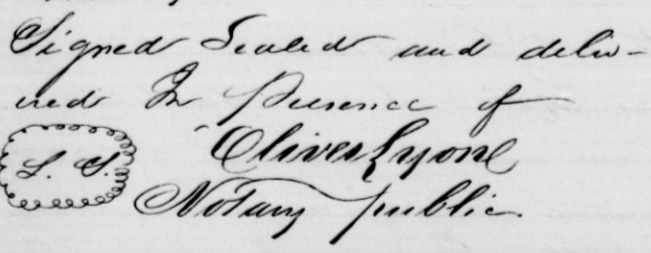 Signed Sealed and deliv-
ered In Presence of
Oliver Lyons
L. S.
Notary public